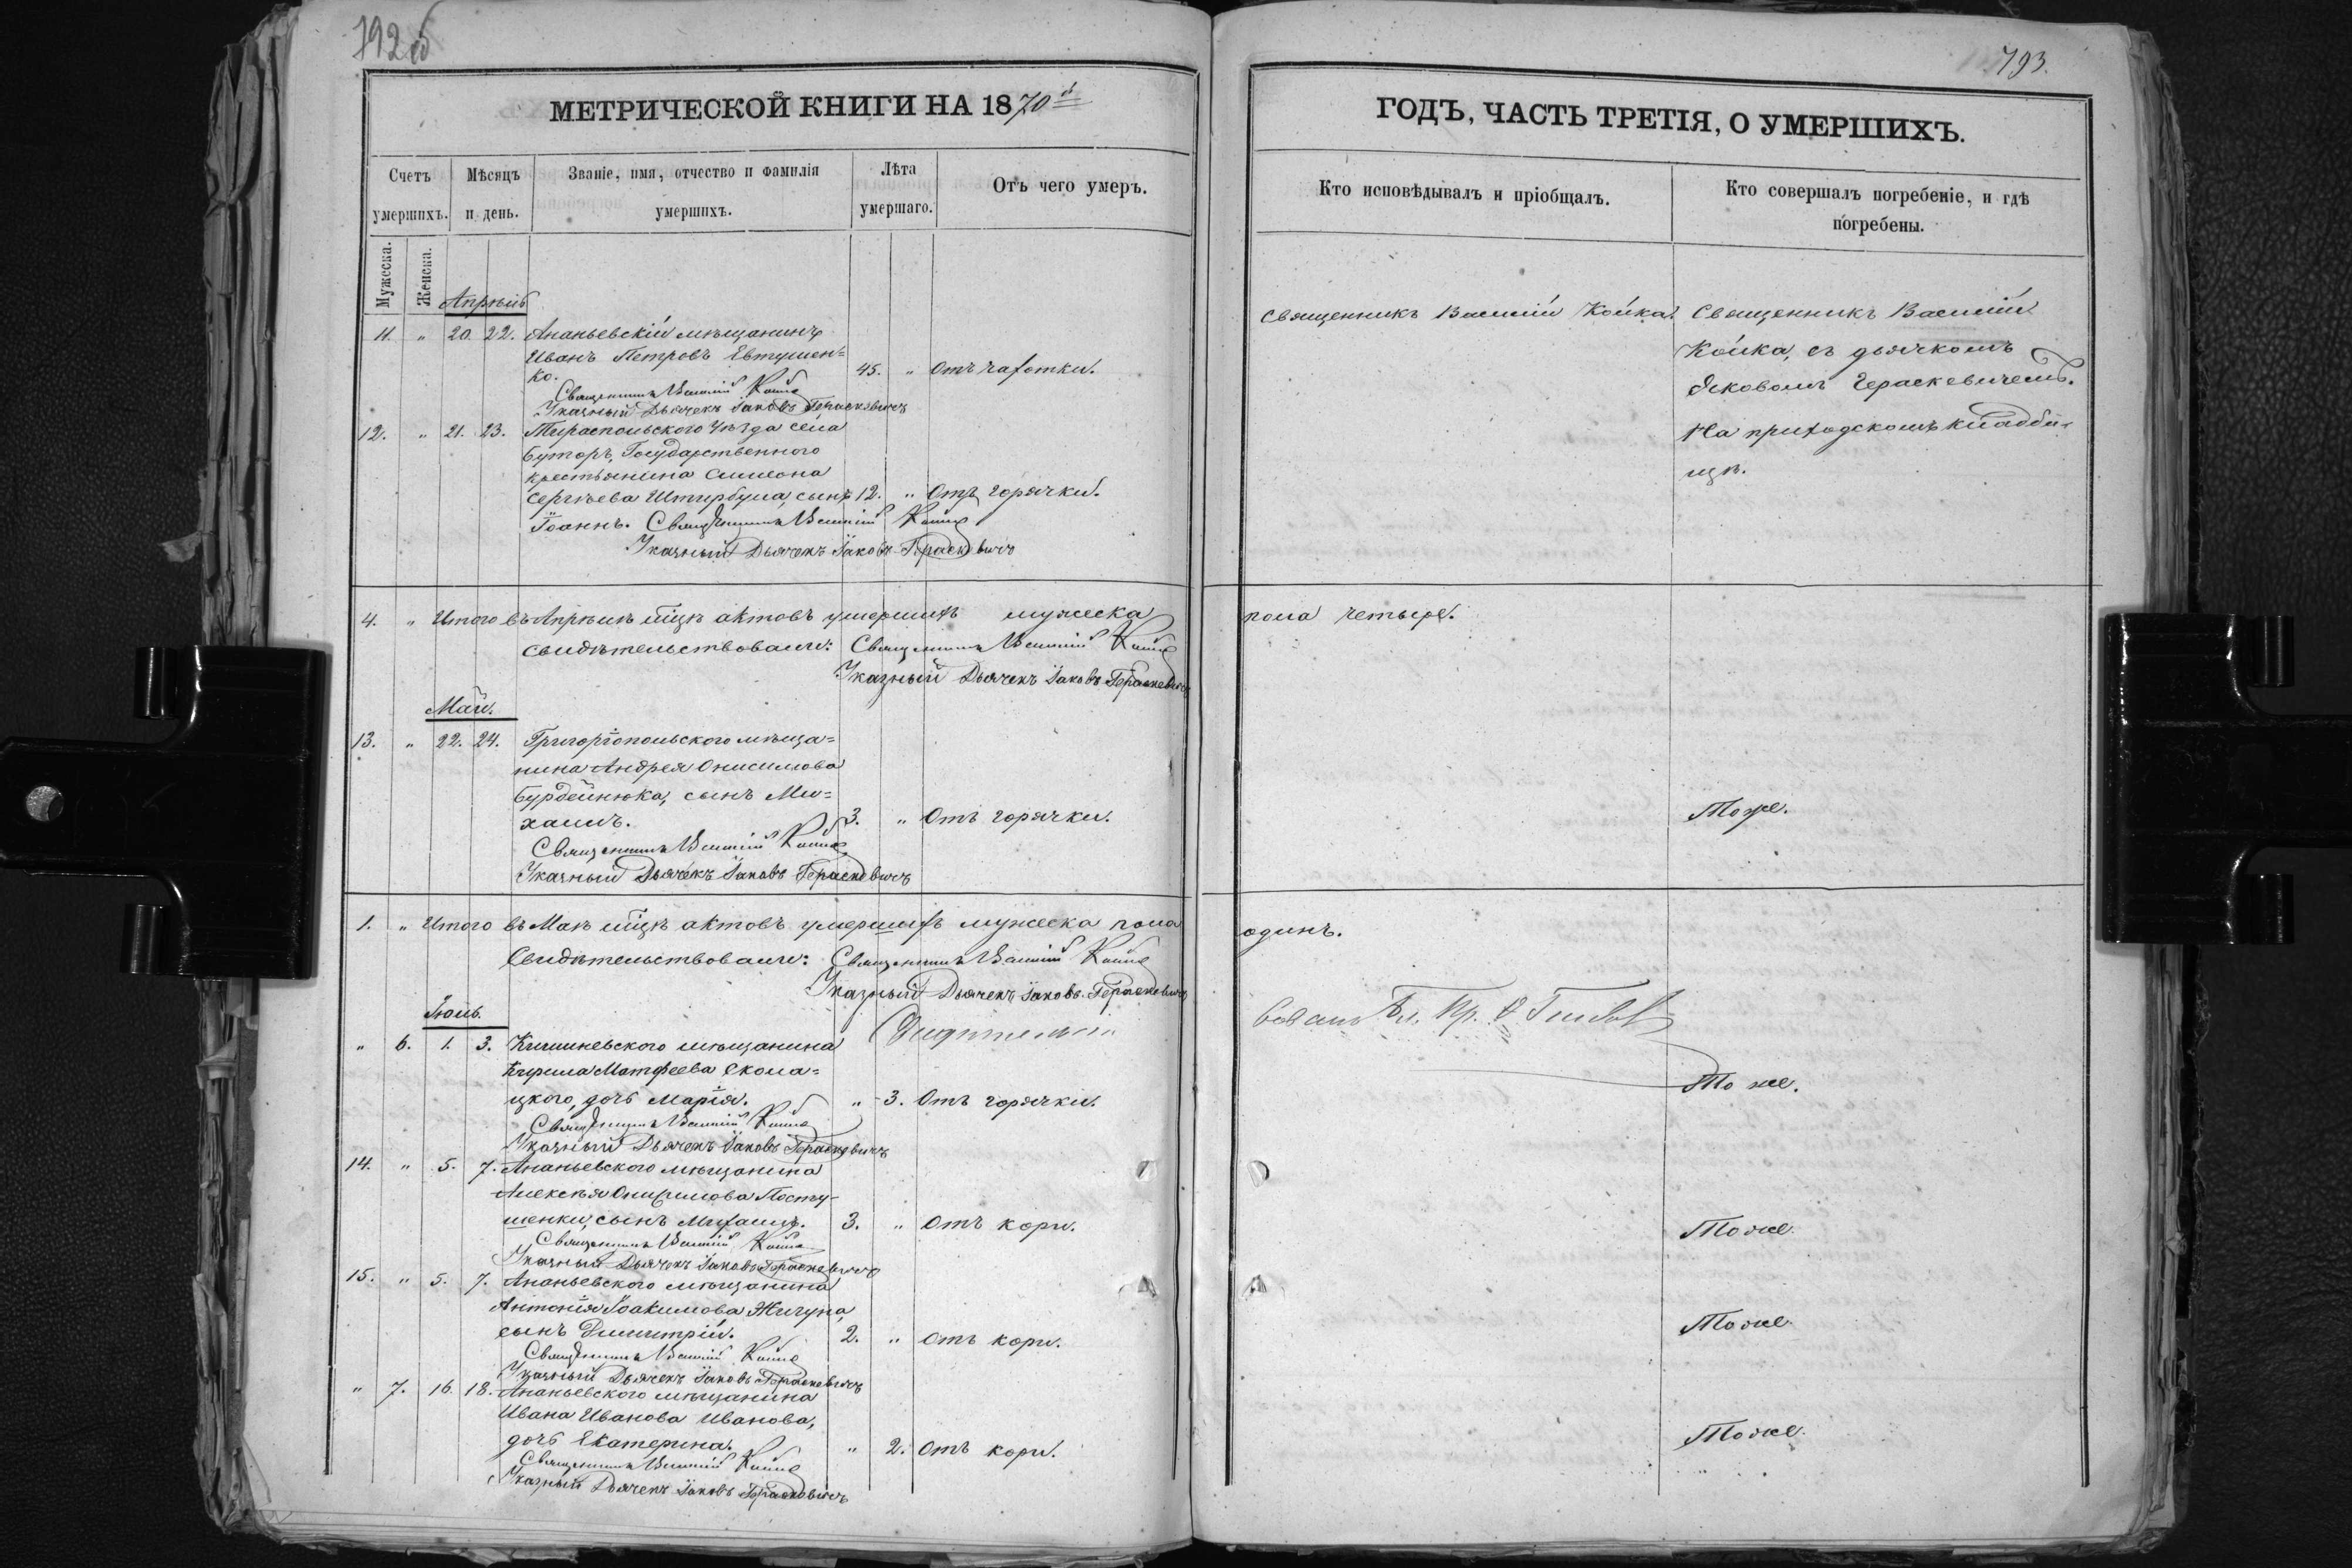 792 об
МЕТРИЧЕСКОЙ КНИГИ НА 1870й
Счетъ умершихъ.
Мѣсяцъ и день.
Званіе, имя, отчество и фамилія умершихъ.
Лѣта умершаго.
Отъ чего умеръ.
Мужеска.
Женска.
Апрѣль
11. " 20. 22. Ананьевскій мѣщанинъ
Иванъ Петровъ Евтушен=
ко. 45. " Отъ чахотки.
Священникъ Василій Койка
Указный Дьячекъ Іаковъ Гераскевичъ
12. " 21. 23. Тираспольского Уѣзда села
Буторъ, Государственного
крестьянина Симеона
Сергѣева Штирбула, сынъ 12. " Отъ горячки.
Іоаннъ. Священникъ Василій Койка
Указный Дьячекъ Іаковъ Гераскевичъ
4. " Итого въ Апрѣлѣ мцѣ актовъ умершихъ мужеска
свидѣтельствовали: Священникъ Василій Койка
Указный Дьячекъ Іаковъ Гераскевичъ
Май.
13. " 22. 24. Григоріопольского мѣща=
нина Андрея Онисимова
Бурдейнюка, сынъ Ми=
хаилъ. 3. " Отъ горячки.
Священникъ Василій Койка
Указный Дьячекъ Іаковъ Гераскевичъ
1. " Итого въ Маѣ мцѣ актовъ умершихъ мужеска пола
Свидѣтельствовали: Священникъ Василій Койка
Указный Дьячекъ Іаковъ Гераскевичъ
Іюнь.
" 6. 1. 3. Кишиневского мѣщанина
Кирила Матфеева Скола=
цкого, дочь Марія. " 3. Отъ горячки.
Священникъ Василій Койка
Указный Дьячекъ Іаковъ Гераскевичъ
14. " 5. 7. Ананьевского мѣщанина
Алексѣя Посту-
шенки, сынъ Михаилъ. 3. " Отъ кори.
Священникъ Василій Койка
Указный Дьячекъ Іаковъ Гераскевичъ
15. " 5. 7. Ананьевского мѣщанина
Антонія Іоакимова Жигуна,
сынъ Димитрій. 2. " Отъ кори.
Священникъ Василій Койка
Указный Дьячекъ Іаковъ Гераскевичъ
" 7. 16. 18. Ананьевского мѣщанина
Ивана Иванова Иванова,
дочь Екатерина. " 2. Отъ кори.
Священникъ Василій Койка
Указный Дьячекъ Іаковъ Гераскевичъ
793.
ГОДЪ, ЧАСТЬ ТРЕТІЯ, О УМЕРШИХЪ.
Кто исповѣдывалъ и пріобщалъ.
Кто совершалъ погребеніе, и гдѣ
погребены.
Священникъ Василій Койка.
Священникъ Василій
Койка, съ дьячкомъ
Яковомъ Гераскевичемъ.
На приходскомъ кладби-
щѣ.
пола четыре.
Тоже.
одинъ.
То же.
Тоже.
Тоже.
Тоже.